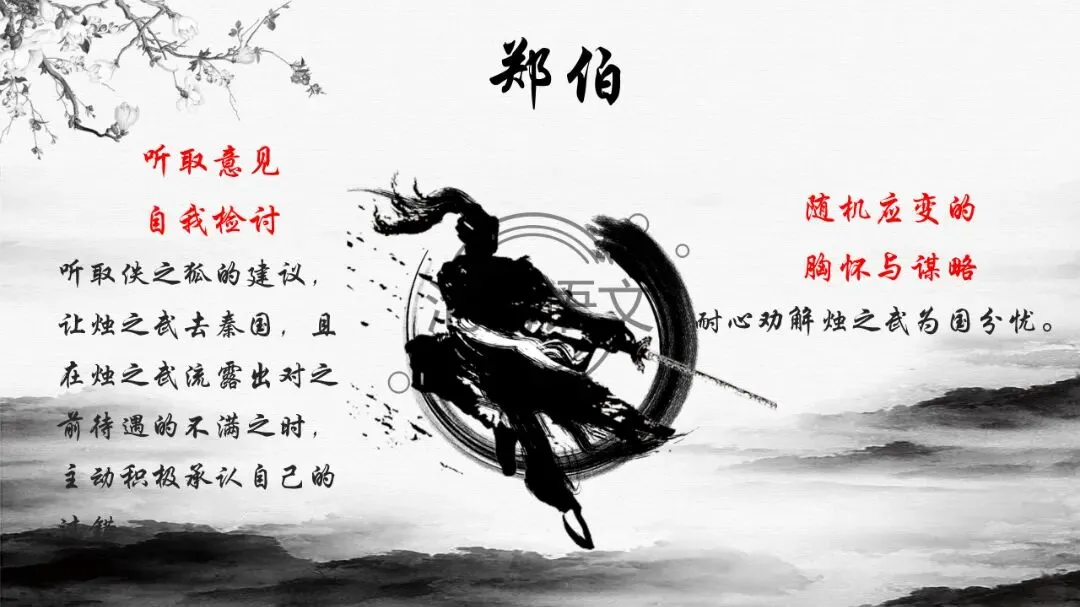 郑伯
听取意见
自我检讨
听取佚之狐的建议，
让烛之武去秦国，且
在烛之武流露出对之
前待遇的不满之时，
主动积极承认自己的
随机应变的
胸怀与谋略
耐心劝解烛之武为国分忧。
语文